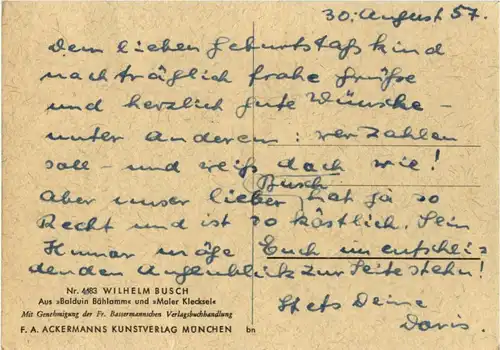 30. August 57.
Dem lieben Geburtstagskind
nachträglich frohe Grüße
und herzlich gute Wünsche -
unter anderem: wer zahlen
soll - und weiß doch wie!
Aber unser lieber Busch hat ja so
Recht und ist so köstlich. Sein
Humor möge Euch im entschei-
denden Augenblick zur Seite stehn!
Stets Deine
Doris.
Nr. 4683 WILHELM BUSCH
Aus »Balduin Bählamm« und »Maler Klecksel«
Mit Genehmigung der Fr. Bassermannschen Verlagsbuchhandlung
F. A. ACKERMANNS KUNSTVERLAG MÜNCHEN bn